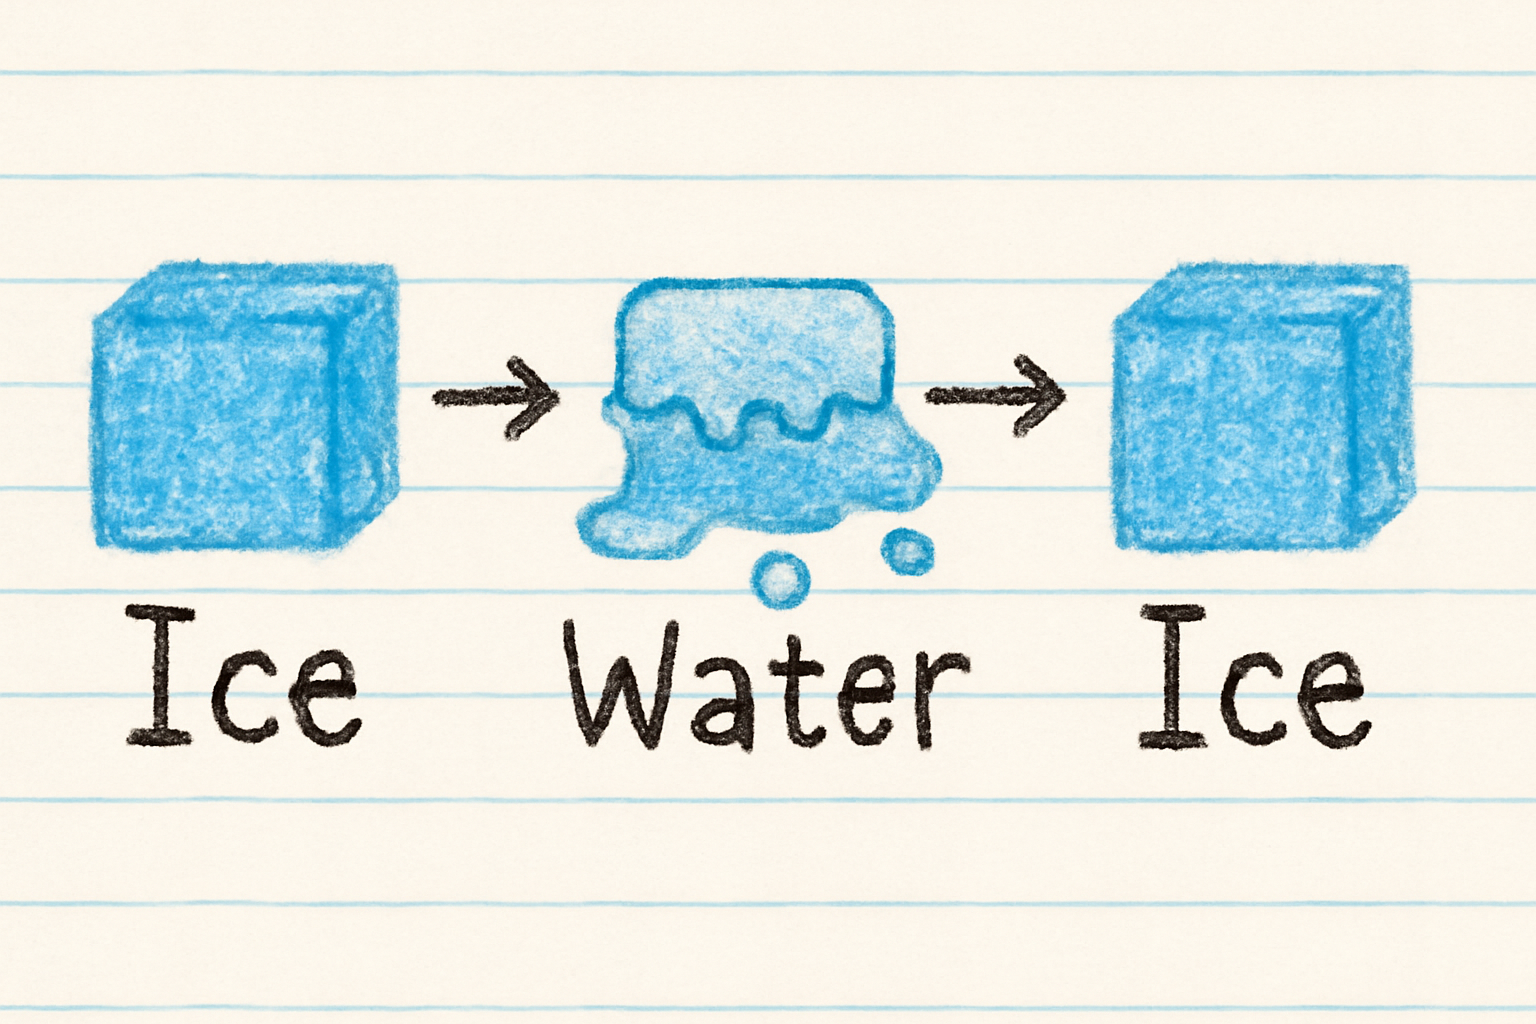 Ice Water Ice